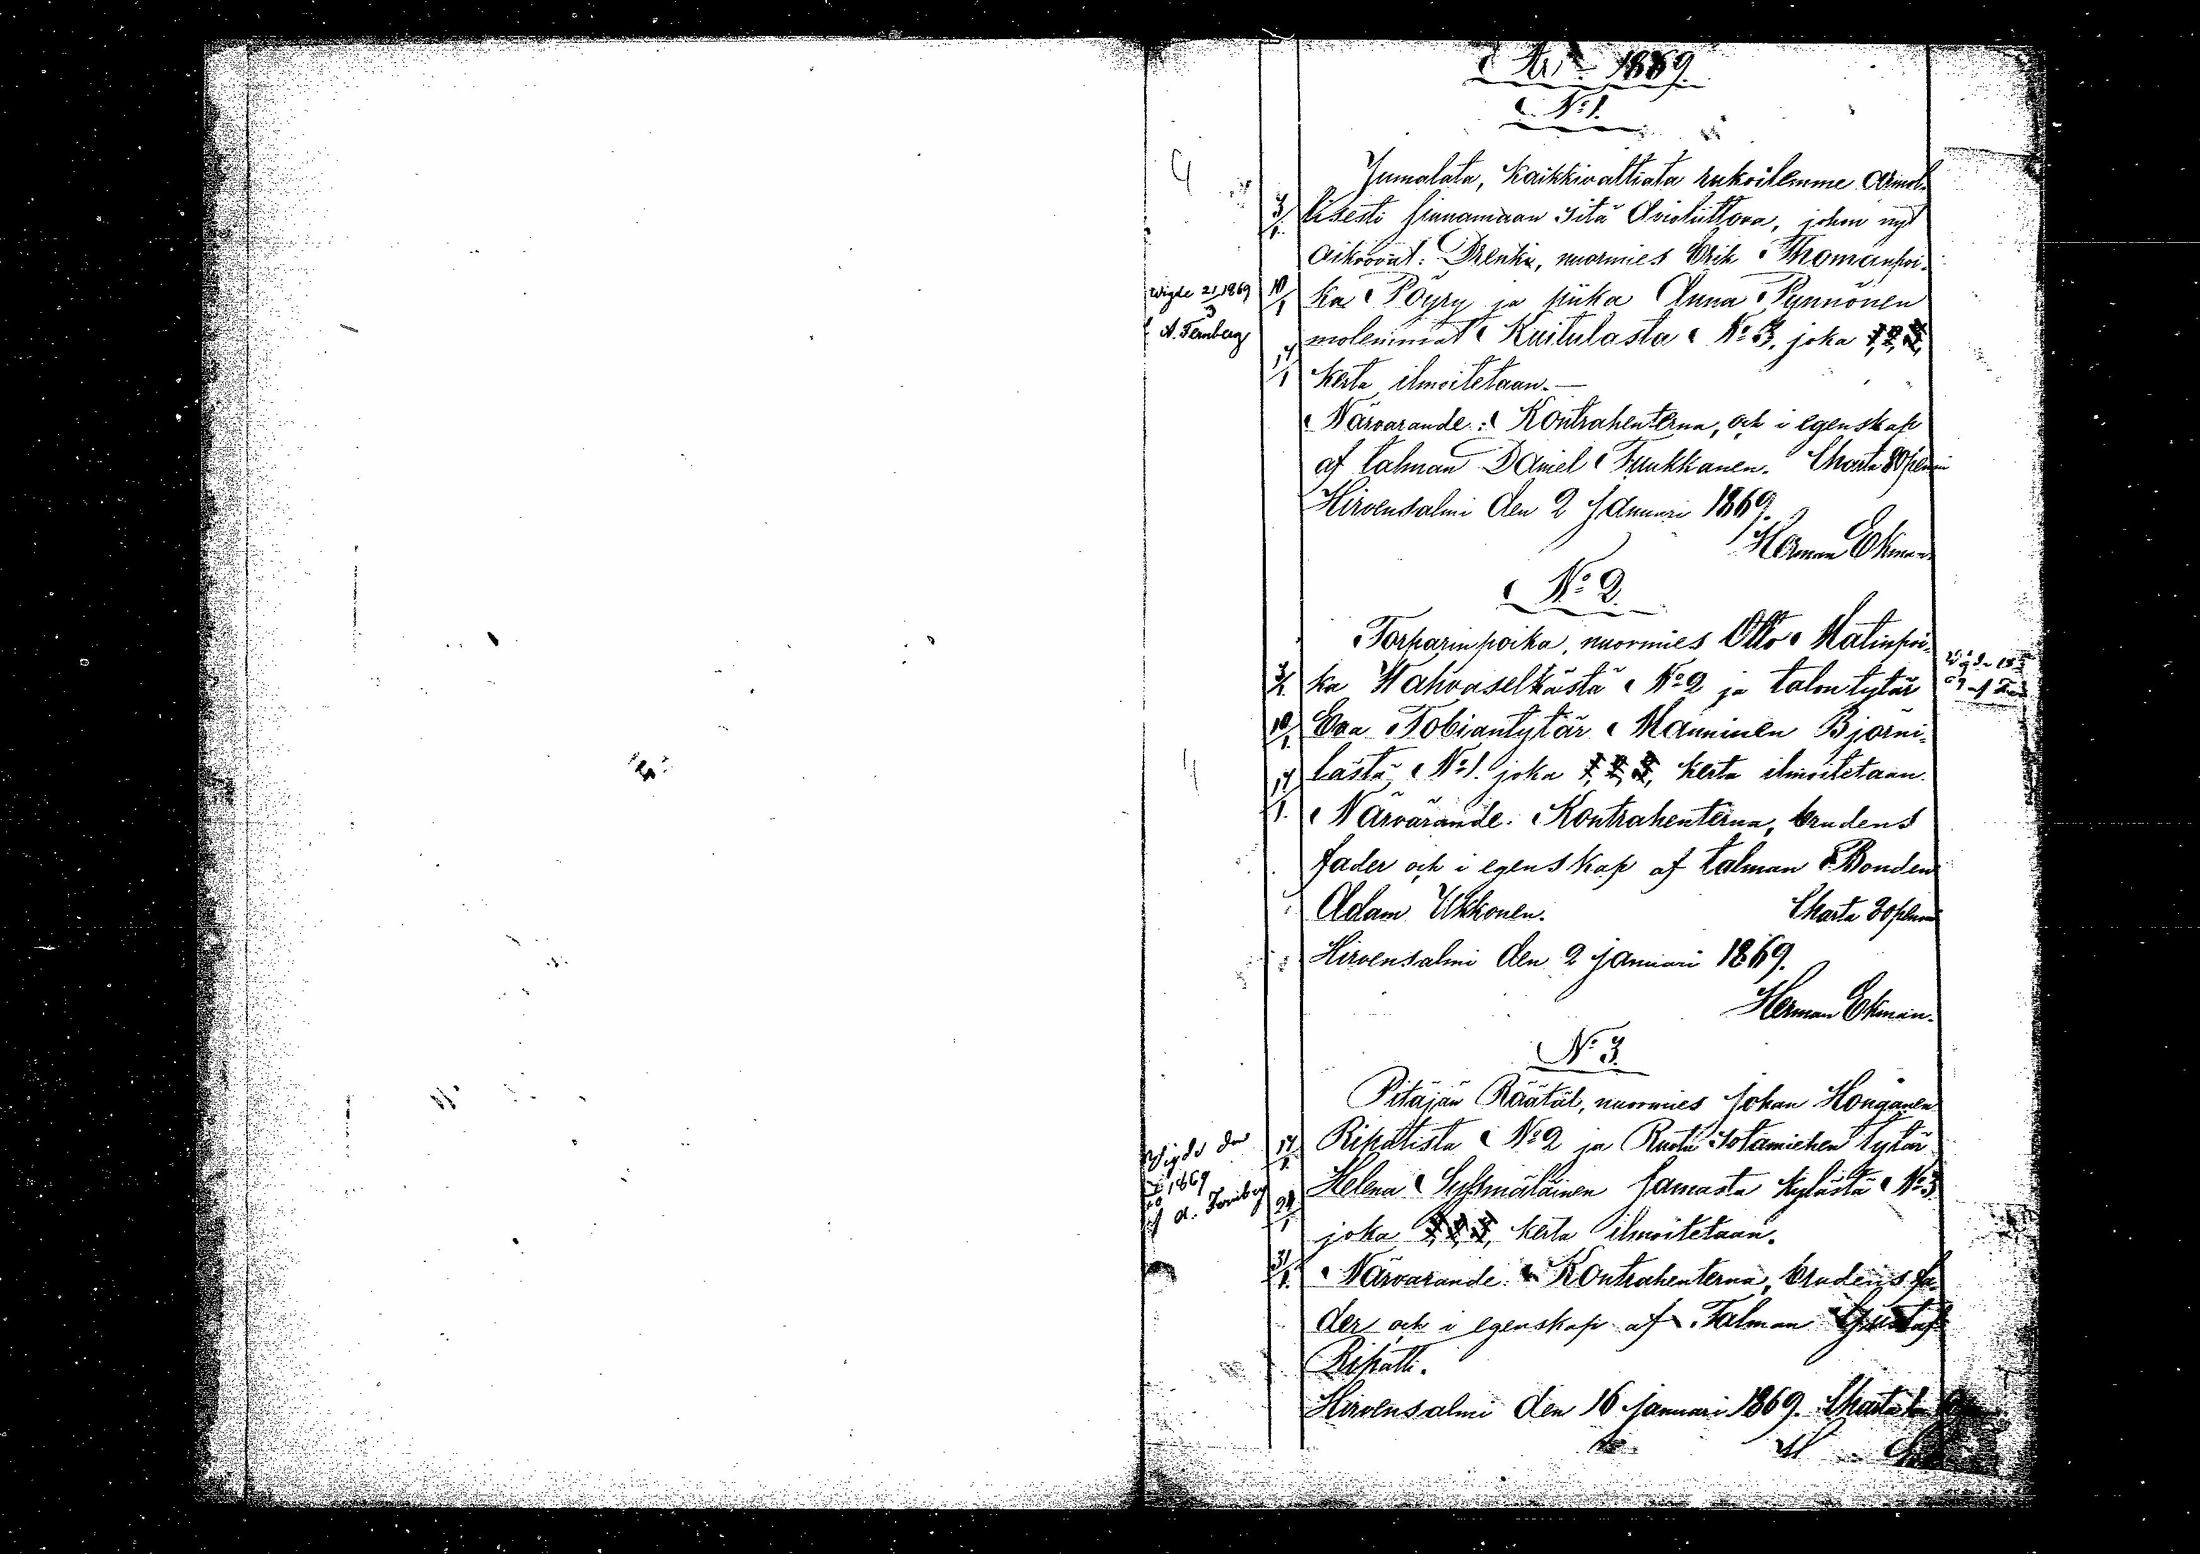 År 1869.
No 1.
Jumalata, kaikkivaltiata rukoilemme armol-
lisesti siunamaan sitä Avioliittova, johon nyt
aikovat: Drenki, nuormies Erik Thomanpoi-
ka Pöyry ja piika Anna Pynnönen
molemmat Kuitulasta No 3, joka 1, 2, 3,
kerta ilmoitetaan.—
Närvarande: Kontrahenterna, och i egenskap
af talman Daniel Tuukkanen. Charta 80 penni
Hirvensalmi den 2 Januari 1869.
Herman Ekman
3/1
10/1
17/1
Wigde 21/3 1869
A. Fernberg
No 2
Torparinpoika, nuormies Otto Matinpoi-
ka Wahvaselkästä No 2 ja talontytär
Eva Tobiantytär Manninen Björni-
lästä No 1. joka 1, 2, 3, kerta ilmoitetaan.
Närvarande: Kontrahenterna, brudens
fader och i egenskap af talman Bonden
Adam Ukkonen. Charta penni
Hirvensalmi den 2 januari 1869.
Herman Ekman.
3/1
10/1
17/1.
Wigde
af
No 3.
Pitäjän Räätäl, nuormies Johan Hongänen
Ripatista No 2 ja Ruotu Sotamiehen tytär
Helena Syssmäläinen samasta kylästä No 3
joka 1, 2, 3, kerta ilmoitetaan.
Närvarande: Kontrahenterna, brudens fa-
der och i egenskap af Talman Gustaf
Ripatti.
Hirvensalmi den 16 januari 1869. Charta
17/1.
24/1
31/1.
Wigde den
1869
af A.